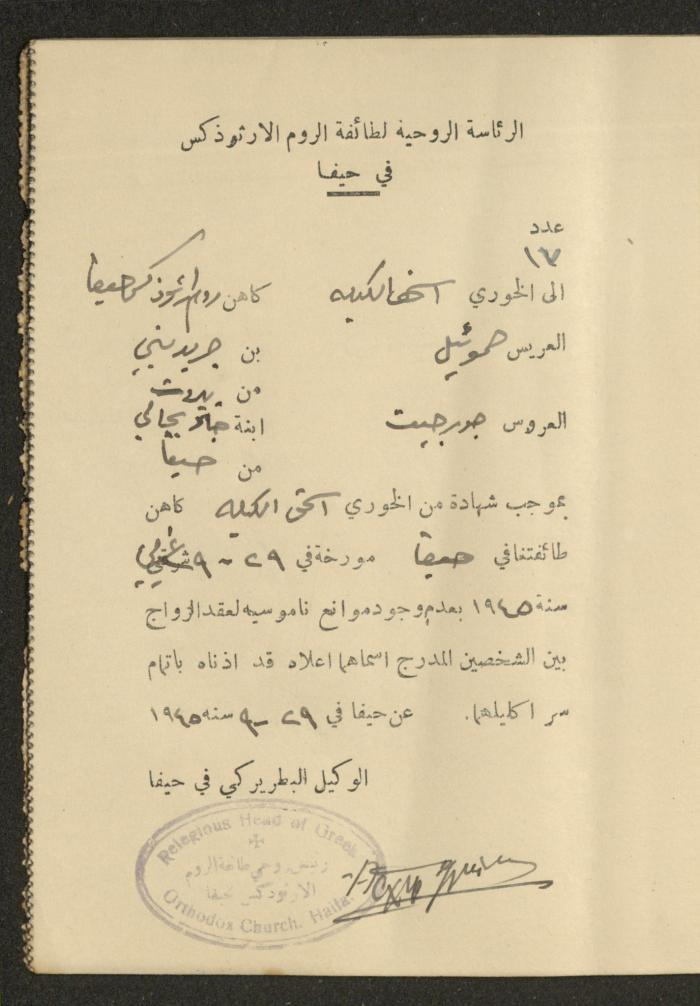 الرئاسة الروحية لطائفة الروم الارثوذكس
في حيفا
عدد
١٧
الى الخوري اسحق الكيله كاهن روم ارثوذكس حيفا
العريس صموئيل بن جريديني
من بيروت
العروس جورجيت ابنة بحالي
من حيفا
بموجب شهادة من الخوري اسحق الكيله كاهن
طائفتنا في حيفا مورخة في ٢٩ - ٩ شرقي غربي
سنة ١٩٤٥ بعدم وجود موانع ناموسيه لعقد الزواج
بين الشخصين المدرج اسماهما اعلاه قد اذناه باتمام
سر اكليلهما. عن حيفا في ٢٩ - ٩ سنه ١٩٤٥
الوكيل البطريركي في حيفا
Relegious Head of Greek
رئيس روحي طائفة الروم
الارثوذكس حيفا
Orthodox Church. Haifa.